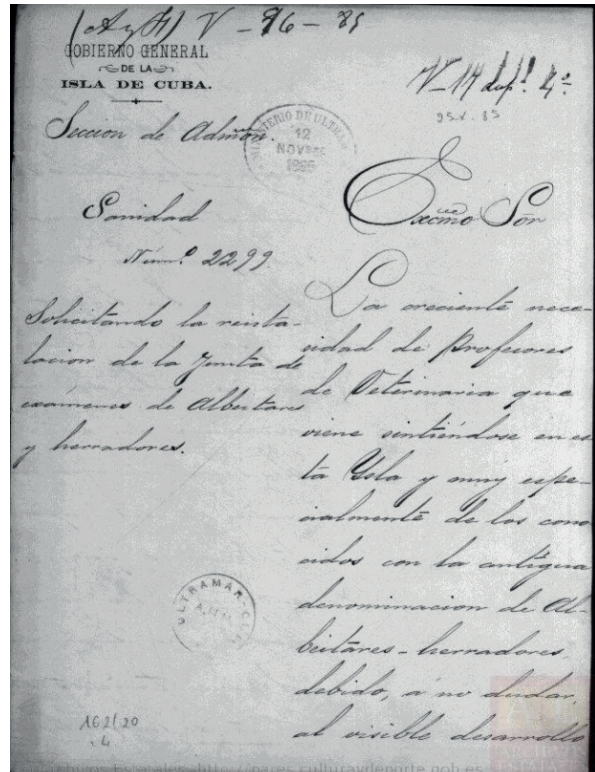 (A y F) V - 96 - 85
GOBIERNO GENERAL
DE LA
ISLA DE CUBA.
Nº 14 dup.º 4º
25.V.85
Seccion de Admon.
MINISTERIO DE ULTRAMAR
12
NOV
Sanidad
Núm.º 2299.
Solicitando la reinsta-
lacion de la Junta de
exámenes de Albeitares
y herradores.
Excmo Sòr
La creciente nece-
cidad de Profesores
de Veterinaria que
viene sintiéndose en es
ta Ysla y muy espe-
cialmente de los cono
cidos con la antigua
denominacion de Al-
beitares-herradores,
debido, a no dudar,
al visible desarrollo
ULTRAMAR
162/20
.4